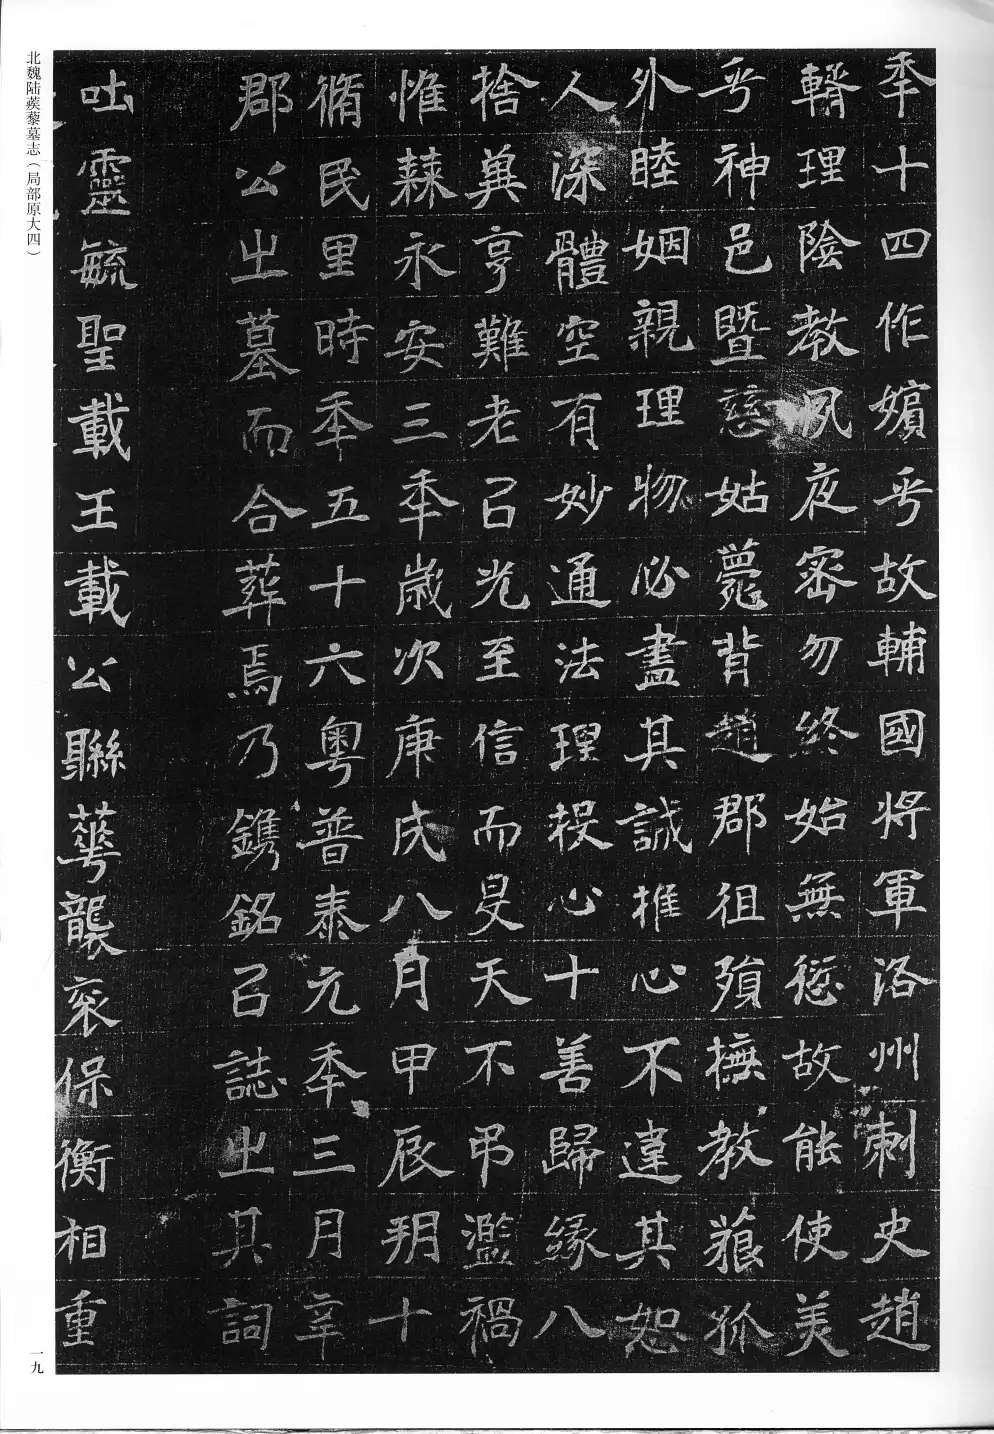 年十四作嬪乎故輔國將軍洛州刺史趙
理陰教夙夜密勿終始無愆故能使美
乎神邑暨慈姑薨背趙郡徂殞撫教藐孤
外睦姻親理物必盡其誠推心不違其恕
人深體空有妙通法理投心十善歸緣八
捨冀亨難老以光至信而旻天不弔濫禍
惟棘永安三年歲次庚戌八月甲辰朔十
脩民里時年五十六粵普泰元年三月辛
郡公之墓而合葬焉乃鐫銘以誌之其詞
吐靈毓聖載王載公聯華襲袞保衡相重
北魏陆蒺藜墓志（局部原大四）
一九